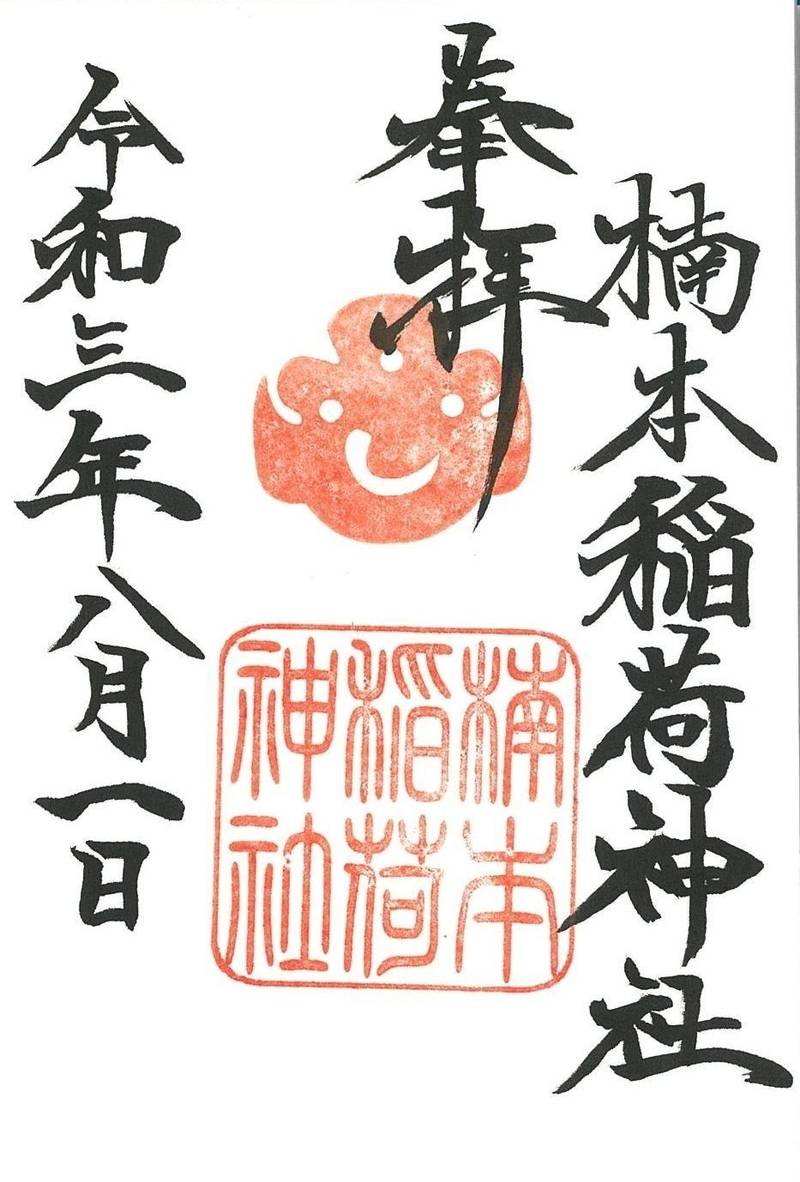 楠本稲荷神社
奉拝
楠本
稲荷
神社
令和三年八月一日